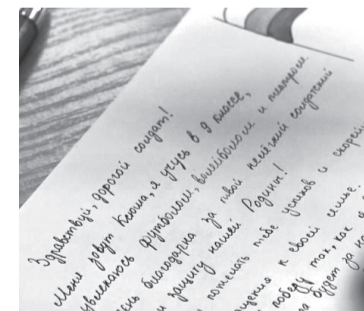 Здравствуй, дорогой солдат!
Меня зовут Ксюша, я учусь в 9 классе,
увлекаюсь футболом, волейболом и театром.
благодарна за твой нелёгкий солдатский
и защиту нашей Родины!
пожелать тебе успехов и скорей
к своей семье
победу так, как
будет за на